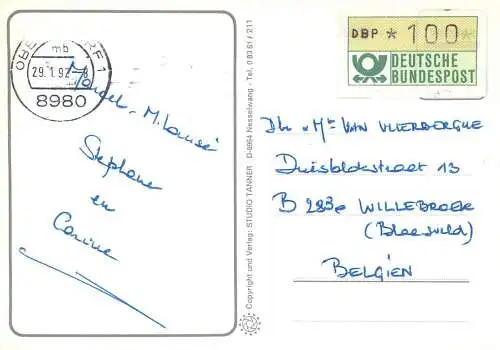 OBERSTDORF 1
mb
29.1.92-8
8980
Marcel - M. Louise
Stephane
en
Corine
Copyright und Verlag: STUDIO TANNER D-8964 Nesselwang - Tel. 0 83 61 / 2 11
DBP * 100 *
DEUTSCHE
BUNDESPOST
Dhr + Mw VAN VLIERBERGHE
13
B 2830 WILLEBROEK
(Blaasveld)
BELGIEN